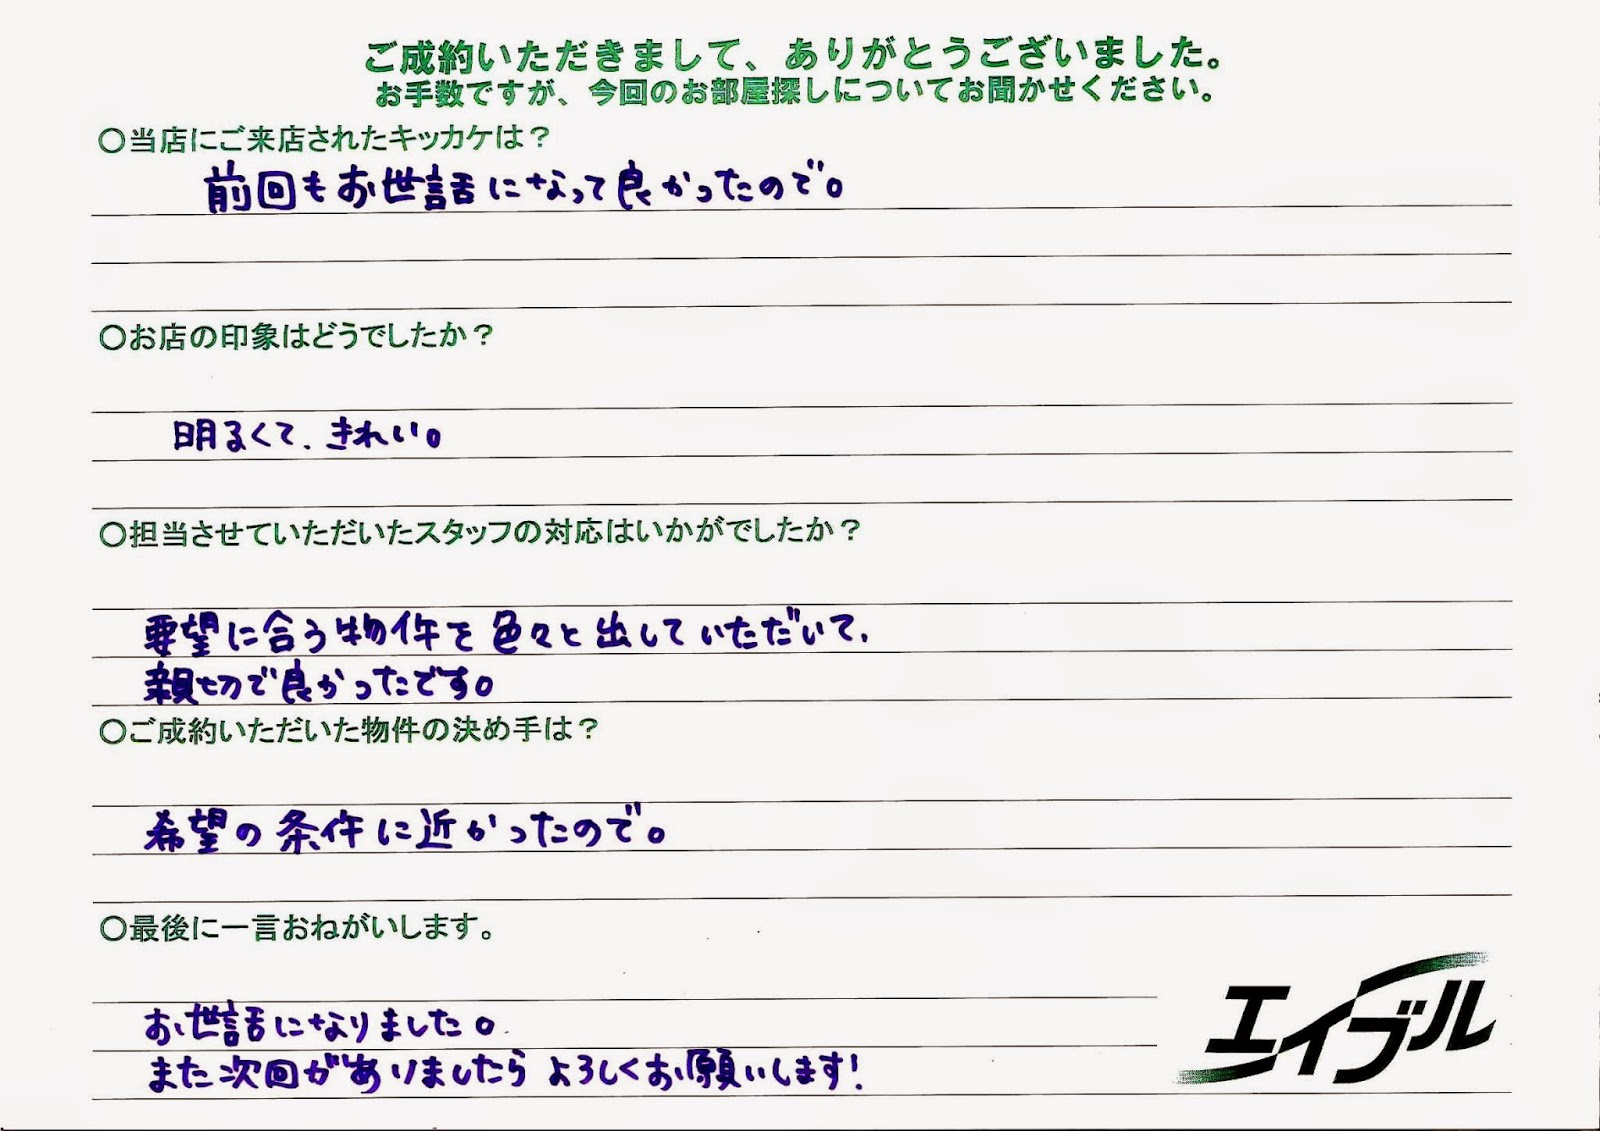 ご成約いただきまして、ありがとうございました。
お手数ですが、今回のお部屋探しについてお聞かせください。
○当店にご来店されたキッカケは？
前回もお世話になって良かったので。
○お店の印象はどうでしたか？
明るくて、きれい。
○担当させていただいたスタッフの対応はいかがでしたか？
要望に合う物件を色々と出していただいて、
親切で良かったです。
○ご成約いただいた物件の決め手は？
希望の条件に近かったので。
○最後に一言おねがいします。
お世話になりました。
また次回がありましたらよろしくお願いします！
エイブル